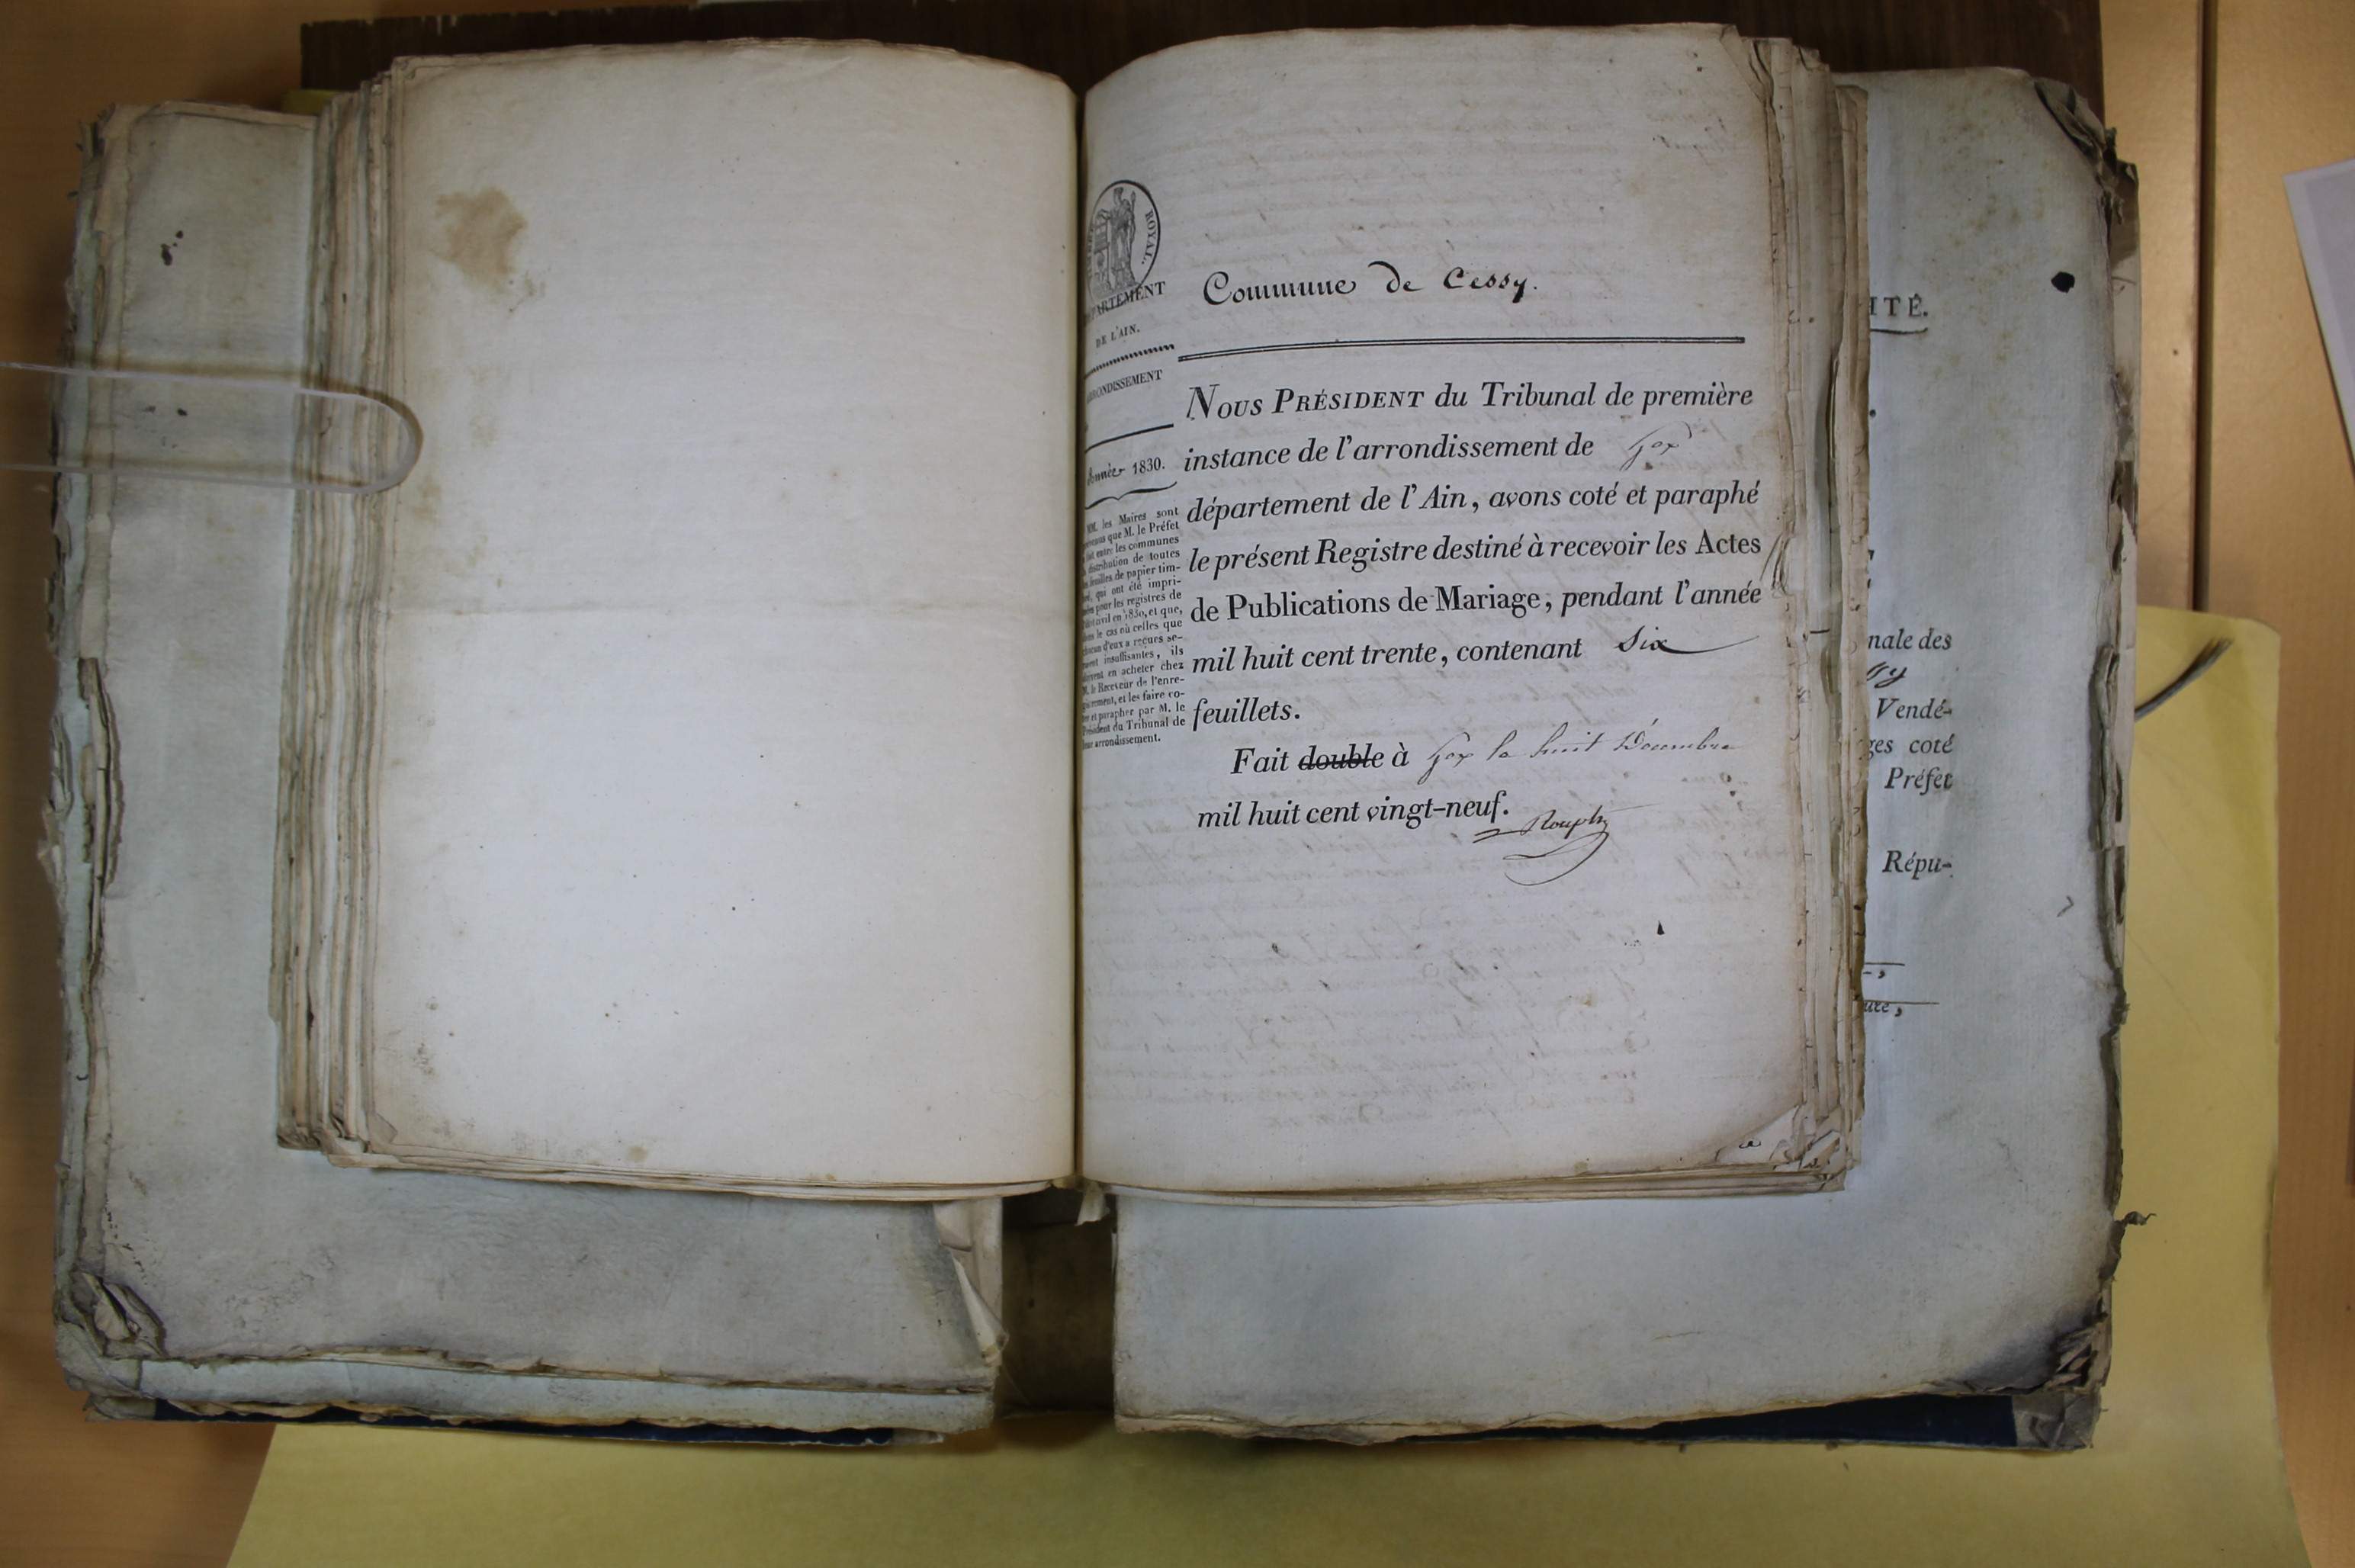 ROYAL.
DÉPARTEMENT
DE L'AIN.
ARRONDISSEMENT
Année 1830.
MM. les Maires sont
prévenus que M. le Préfet
a fait entre les communes
la distribution de toutes
les feuilles de papier tim-
bré, qui ont été impri-
mées pour les registres de
l'état civil en 1830, et que,
dans le cas où celles que
chacun d'eux a reçues se-
raient insuffisantes, ils
devront en acheter chez
M. le Receveur de l'enre-
gistrement, et les faire co-
ter et parapher par M. le
Président du Tribunal de
leur arrondissement.
Commune de Cessy.
NOUS PRÉSIDENT du Tribunal de première
instance de l'arrondissement de Gex
département de l'Ain, avons coté et paraphé
le présent Registre destiné à recevoir les Actes
de Publications de Mariage, pendant l'année
mil huit cent trente, contenant Six
feuillets.
Fait double à Gex le huit Décembre
mil huit cent vingt-neuf.
ITÉ.
nale des
Vendé-
ges coté
Préfet
Répu-